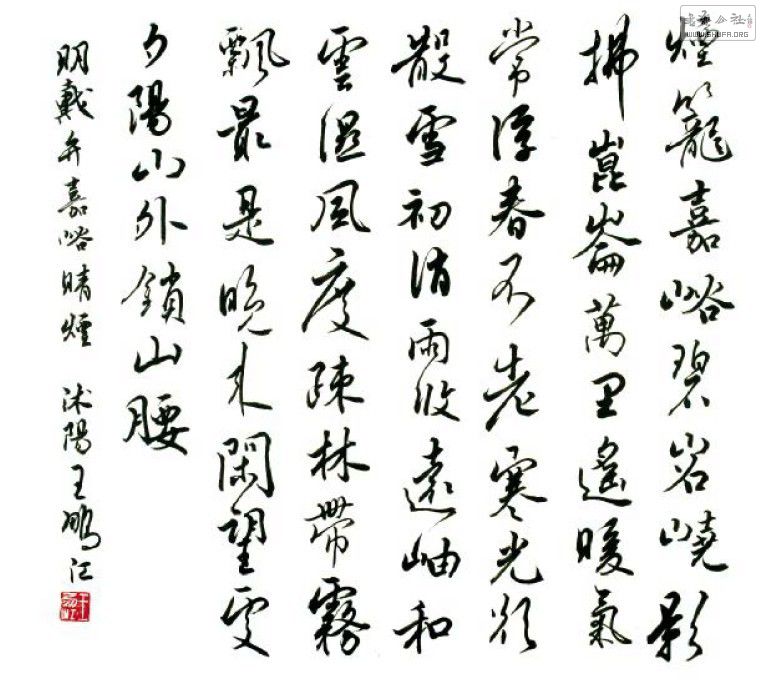 煙籠嘉峪碧岧嶢影
拂崑崙萬里遙暖氣
常浮春不老寒光欲
散雪初消雨收遠岫和
雲濕風度疎林帶霧
飄最是晚來閑望處
夕陽山外鎖山腰
明戴弁嘉峪晴煙 沭陽王鵬江
書法公社
WWW.SHUFA.ORG